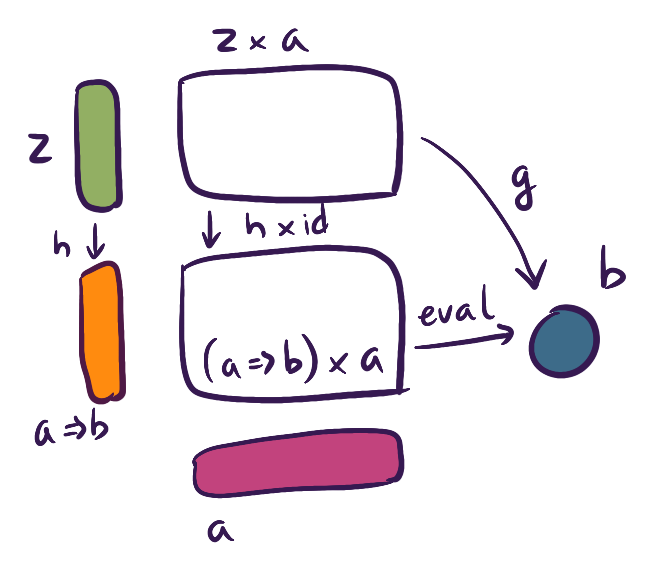 z × a
z
g
h
h × id
b
eval
(a ⇒ b) × a
a ⇒ b
a